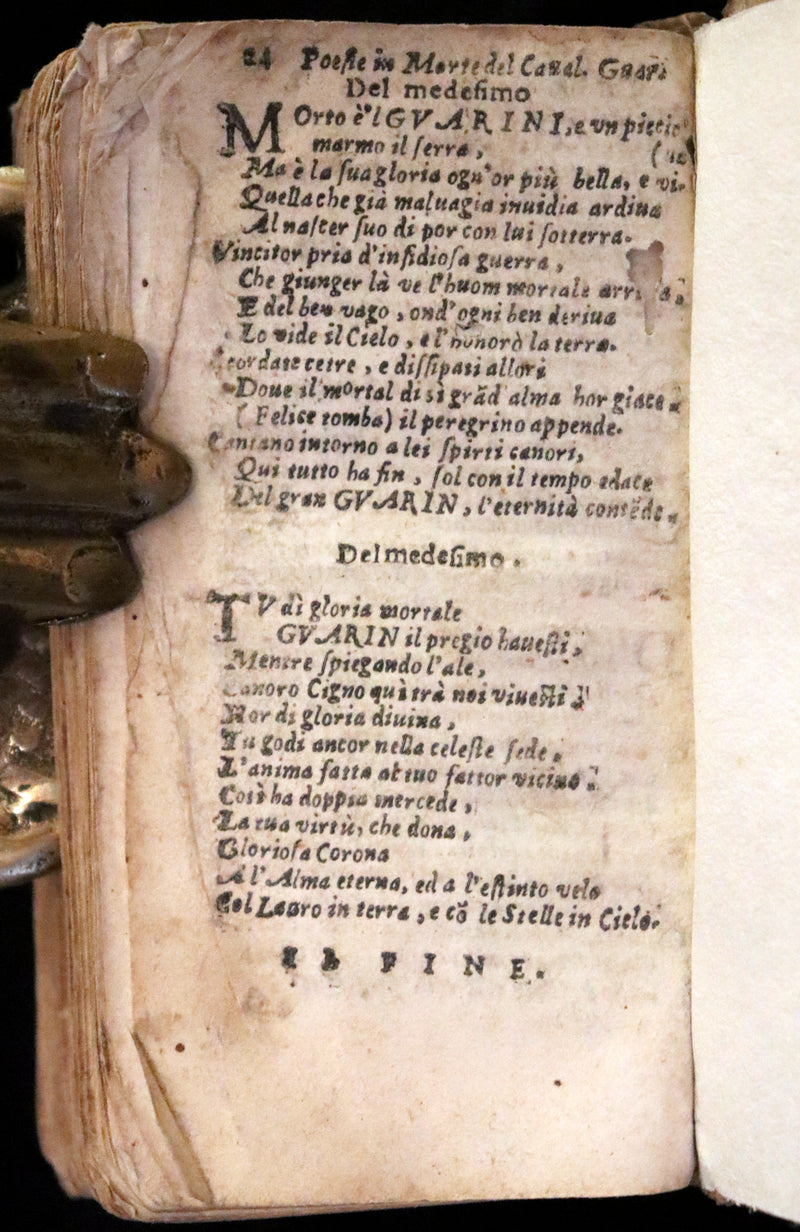 24 Poesie in Morte del Caual. Guari
Del medesimo
MOrto è'l GVARINI, e vn piccio
marmo il serra,
Ma è la sua gloria ogn'or più bella, e vi-
Quella che già maluagia inuidia ardiua
Al nascer suo di por con lui sotterra.
Vincitor pria d'insidiosa guerra,
Che giunger là ve l'huom mortale
E del ben vago, ond'ogni ben deriua
Lo vide il Cielo, e l'honorò la terra.
Scordate cetre, e dissipati allori
Doue il mortal di sì grãd'alma hor giace
(Felice tomba) il peregrino appende.
Cantano intorno a lei spirti canori,
Qui tutto ha fin, sol con il tempo edace
Del gran GVARIN, l'eternità contẽde.
Del medesimo.
TV dì gloria mortale
GVARIN il pregio hauesti,
Mentre spiegando l'ale,
Canoro Cigno quì trà noi viuesti
Hor di gloria diuina,
Tu godi ancor nella celeste sede,
L'anima fatta al tuo fattor vicina
Così ha doppia mercede,
La tua virtù, che dona,
Gloriosa Corona
A l'Alma eterna, ed a l'estinto velo
Col Lauro in terra, e cõ le Stelle in Cielo.
IL FINE.